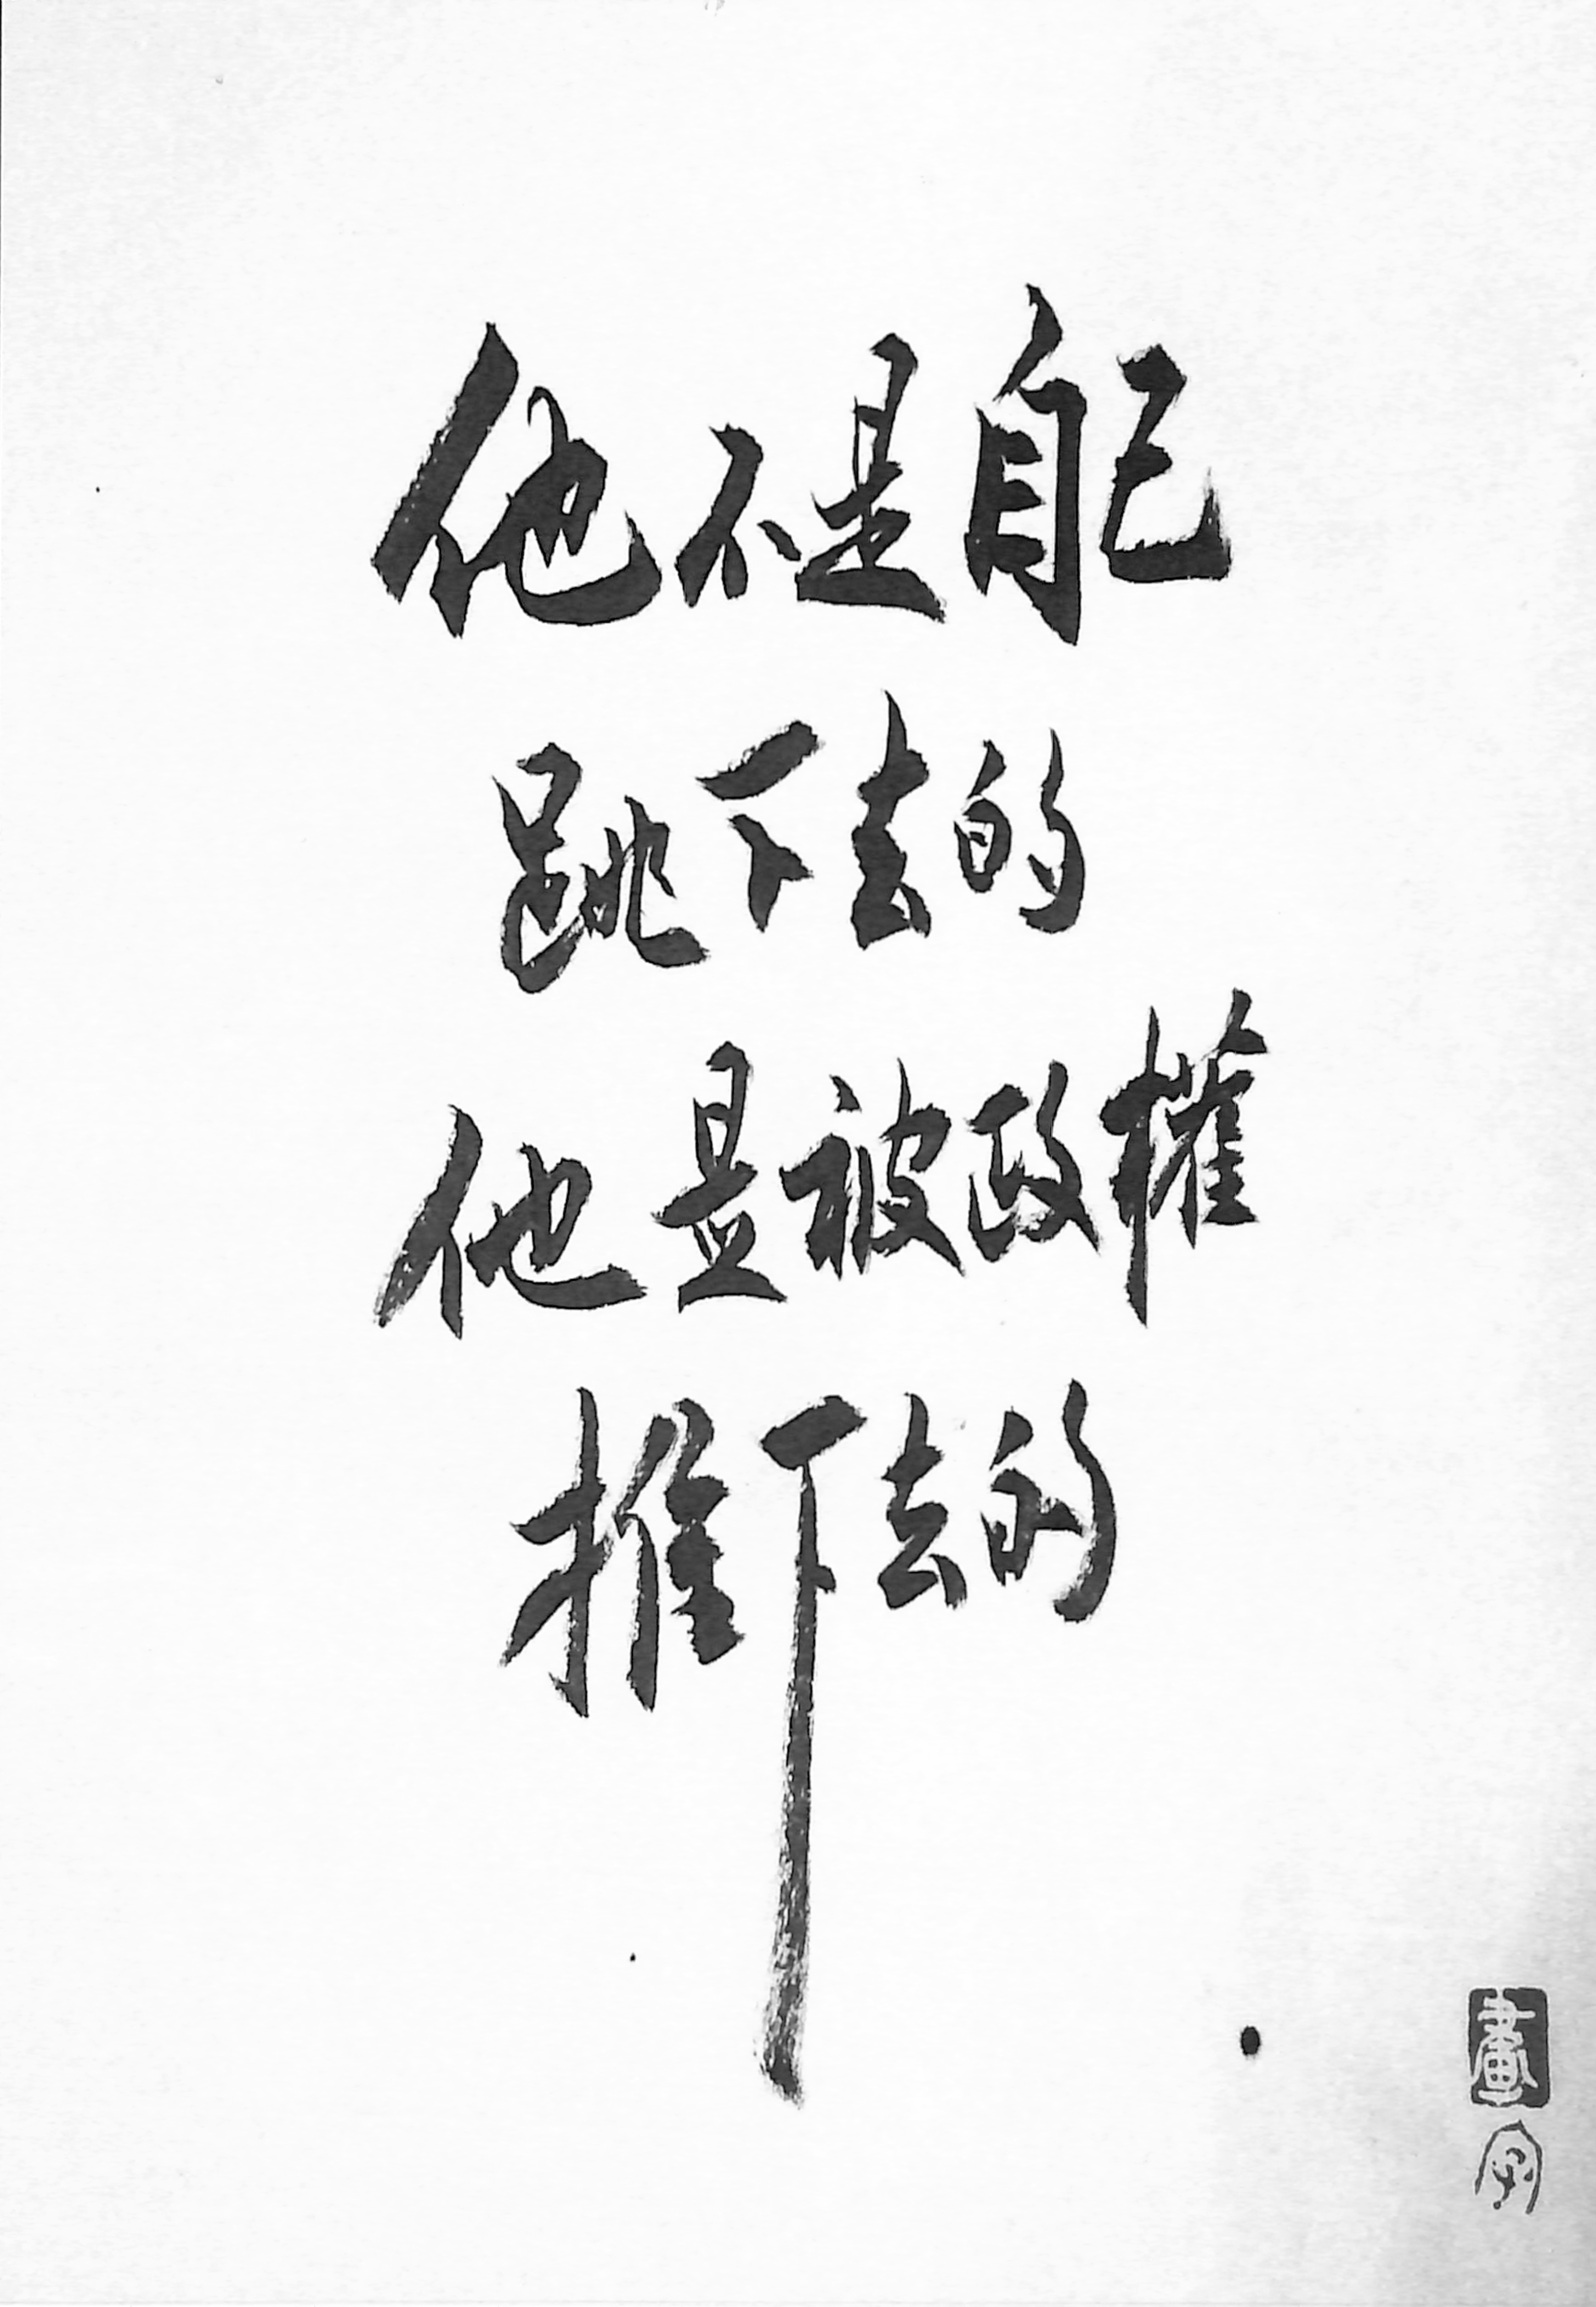 他不是自己
跳下去的
他是被政權
推下去的
畫字